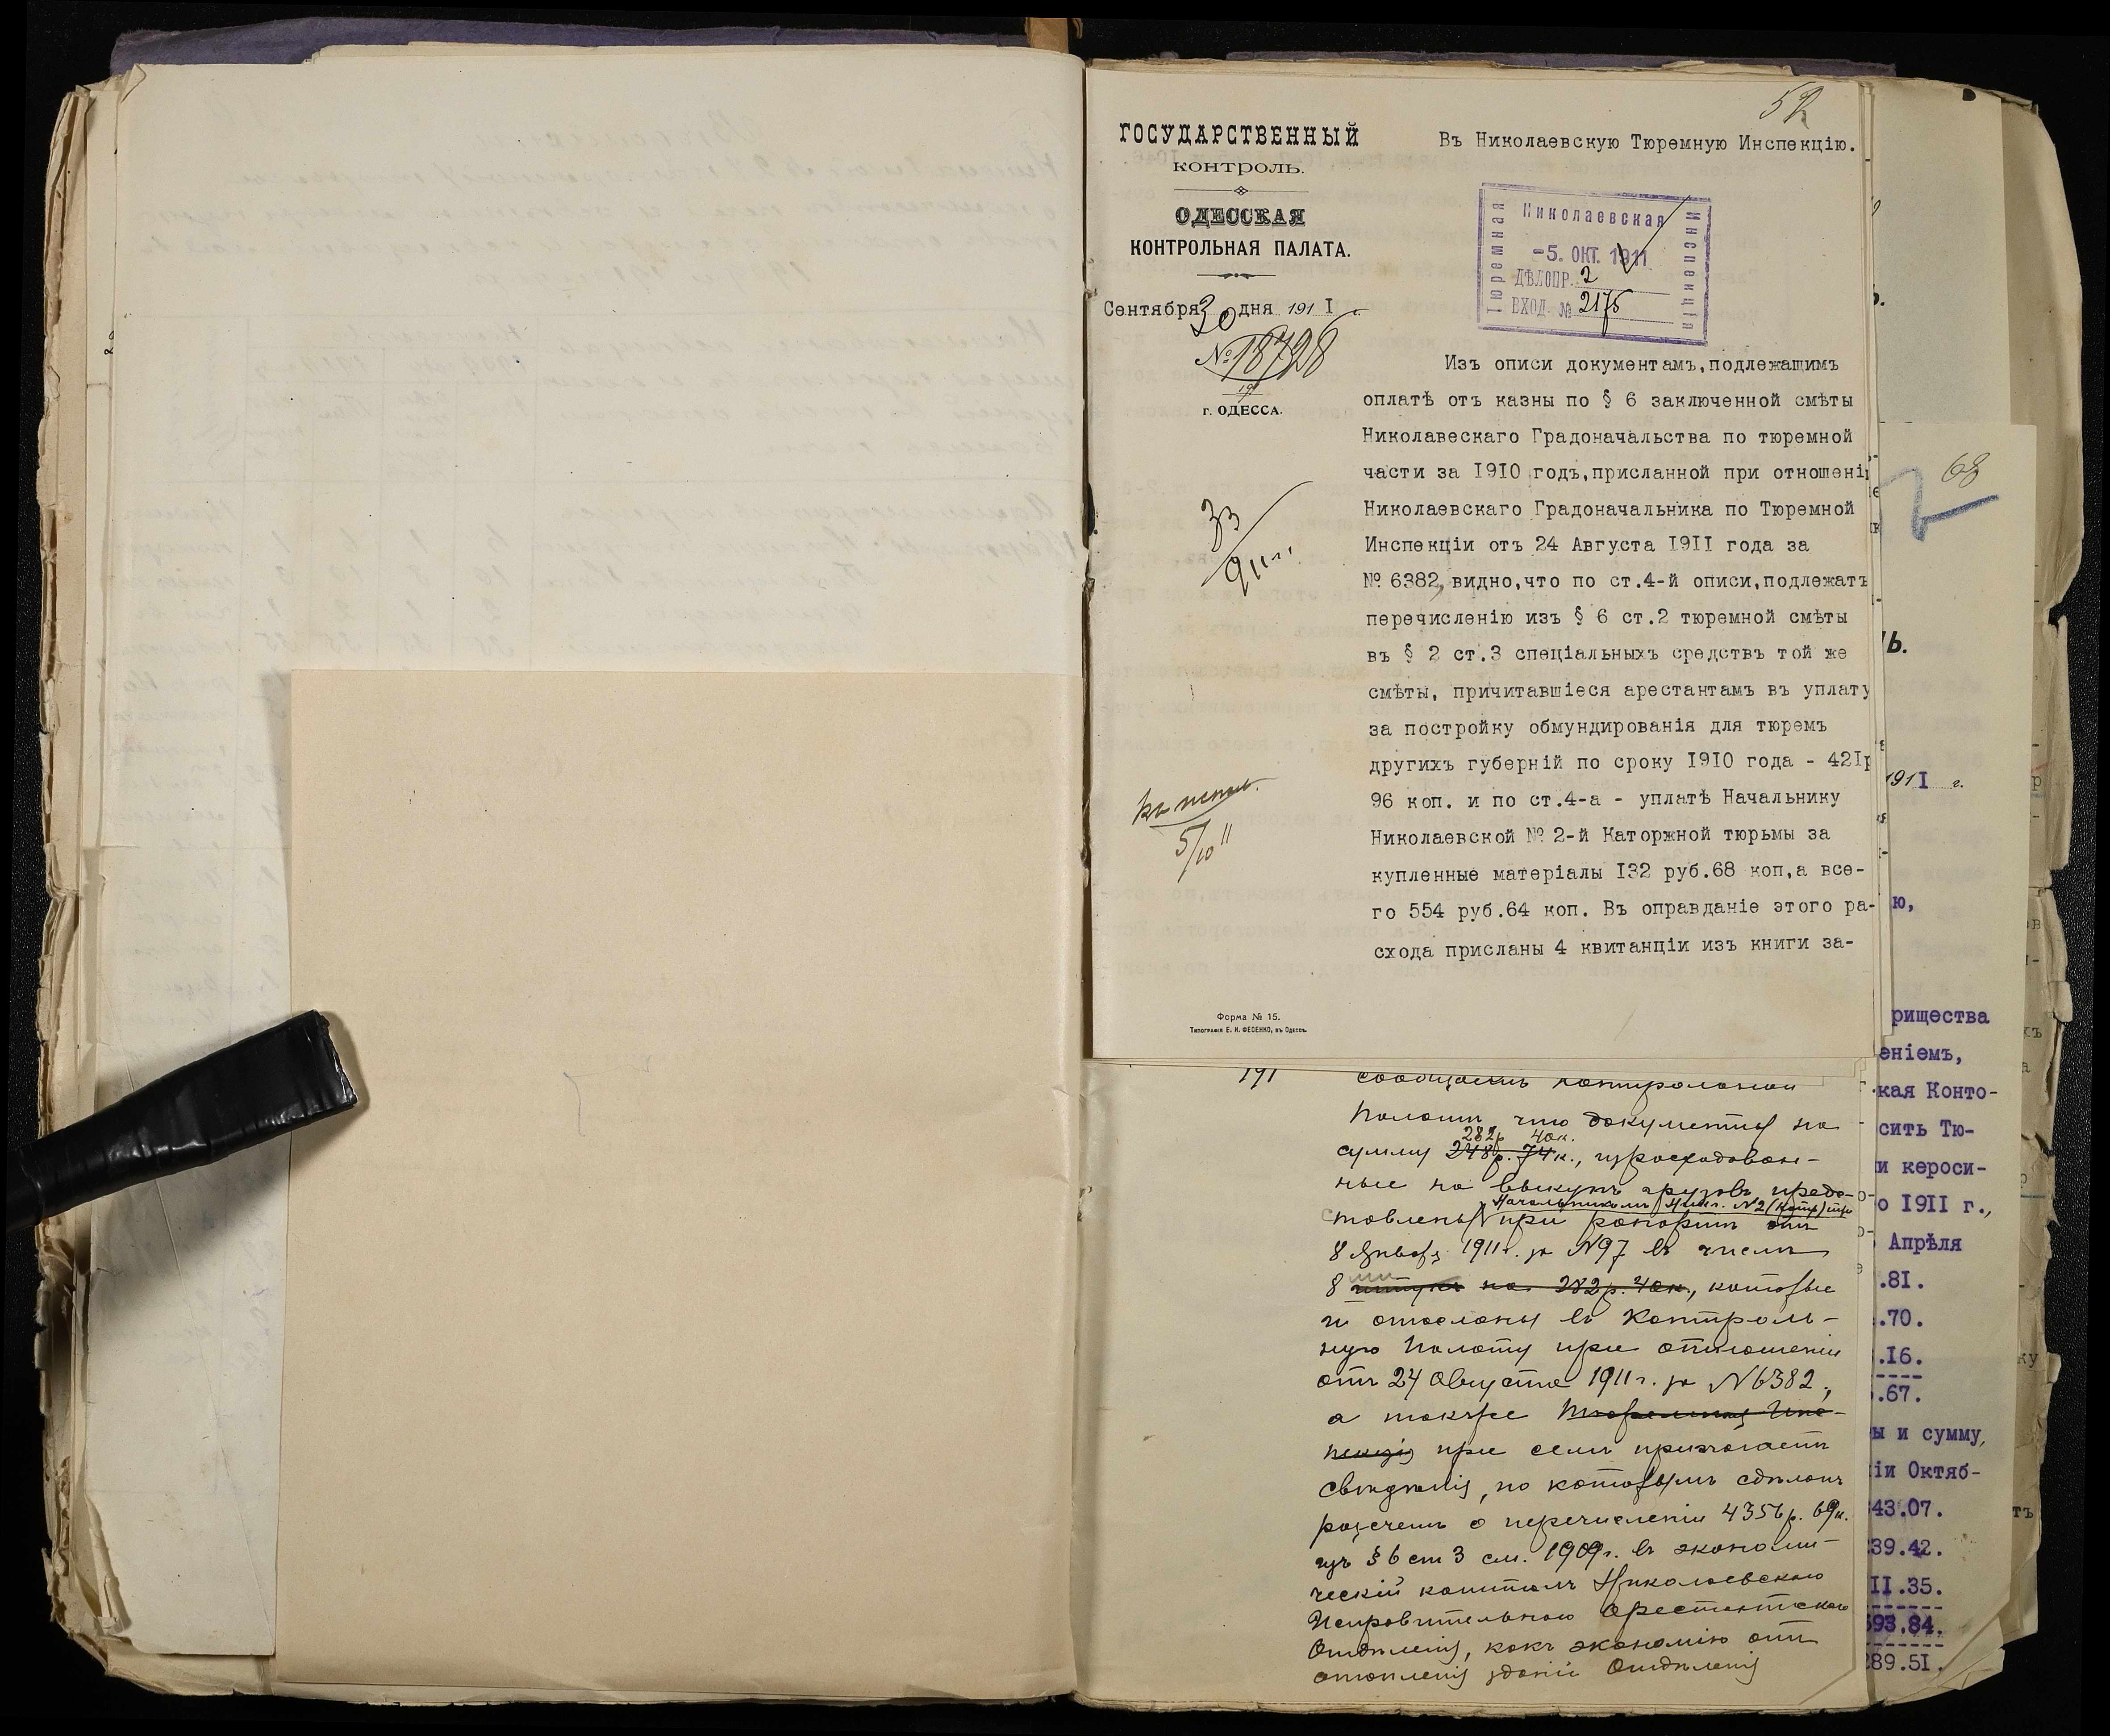 52
ГОСУДАРСТВЕННЫЙ
КОНТРОЛЬ.
ОДЕССКАЯ
КОНТРОЛЬНАЯ ПАЛАТА.
Сентября 30 дня 191 I г.
№ 18728
г. ОДЕССА.
33
911 г.
5/10 11
Форма № 15.
Типографія Е. И. ФЕСЕНКО, въ Одессѣ.
Въ Николаевскую Тюремную Инспекцію.
Николаевская
Тюремная
Инспекція
-5. ОКТ. 1911
ДѢЛОПР. 2
ВХОД. № 2175
Изъ описи документамъ,подлежащимъ
оплатѣ отъ казны по § 6 заключенной смѣты
Николавескаго Градоначальства по тюремной
части за I9I0 годъ,присланной при отношені
Николаевскаго Градоначальника по Тюремной
Инспекціи отъ 24 Августа I9II года за
№ 6382,видно,что по ст.4-й описи,подлежатъ
перечисленію изъ § 6 ст.2 тюремной смѣты
въ § 2 ст.3 спеціальныхъ средствъ той же
смѣты, причитавшіеся арестантамъ въ уплату
за постройку обмундированія для тюремъ
другихъ губерній по сроку I9I0 года - 42Iр
96 коп. и по ст.4-а - уплатѣ Начальнику
Николаевской № 2-й Каторжной тюрьмы за
купленные матеріалы I32 руб.68 коп,а все-
го 554 руб.64 коп. Въ оправданіе этого ра-
схода присланы 4 квитанціи изъ книги за-
191
сообщаетъ Контрольной
Палатѣ, что документы на
282р. 40к.
сумму 248р. 74к., израсходован-
ные на выкупъ грузовъ предс-
Начальникомъ Никол. №2 (Катр)
тавлены при рапортѣ отъ
8 Января 1911г. за №97 въ числѣ
8 штукъ на 282р. 40к., которые
и отосланы въ Контроль-
ную Палату при отношеніи
отъ 24 Августа 1911 г. за №6382,
а также Тюремная Инс-
пекція при семъ прилагаетъ
свѣдѣнія, по которымъ сдѣланъ
разсчетъ о перечисленіи 4356р. 69к.
изъ § 6 ст 3 см. 1909г. въ экономи-
ческій капиталъ Николаевскаго
Исправительнаго Арестантскаго
Отдѣленія, какъ экономію отъ
отопленія зданій Отдѣленія
68
191I г.
ю,
рищества
еніемъ,
кая Конто-
сить Тю-
и кероси-
о I9II г.,
Апрѣля
.8I.
.70.
.I6.
.67.
ы и сумму,
іи Октяб-
43.07.
39.42.
II.35.
93.84.
89.5I.